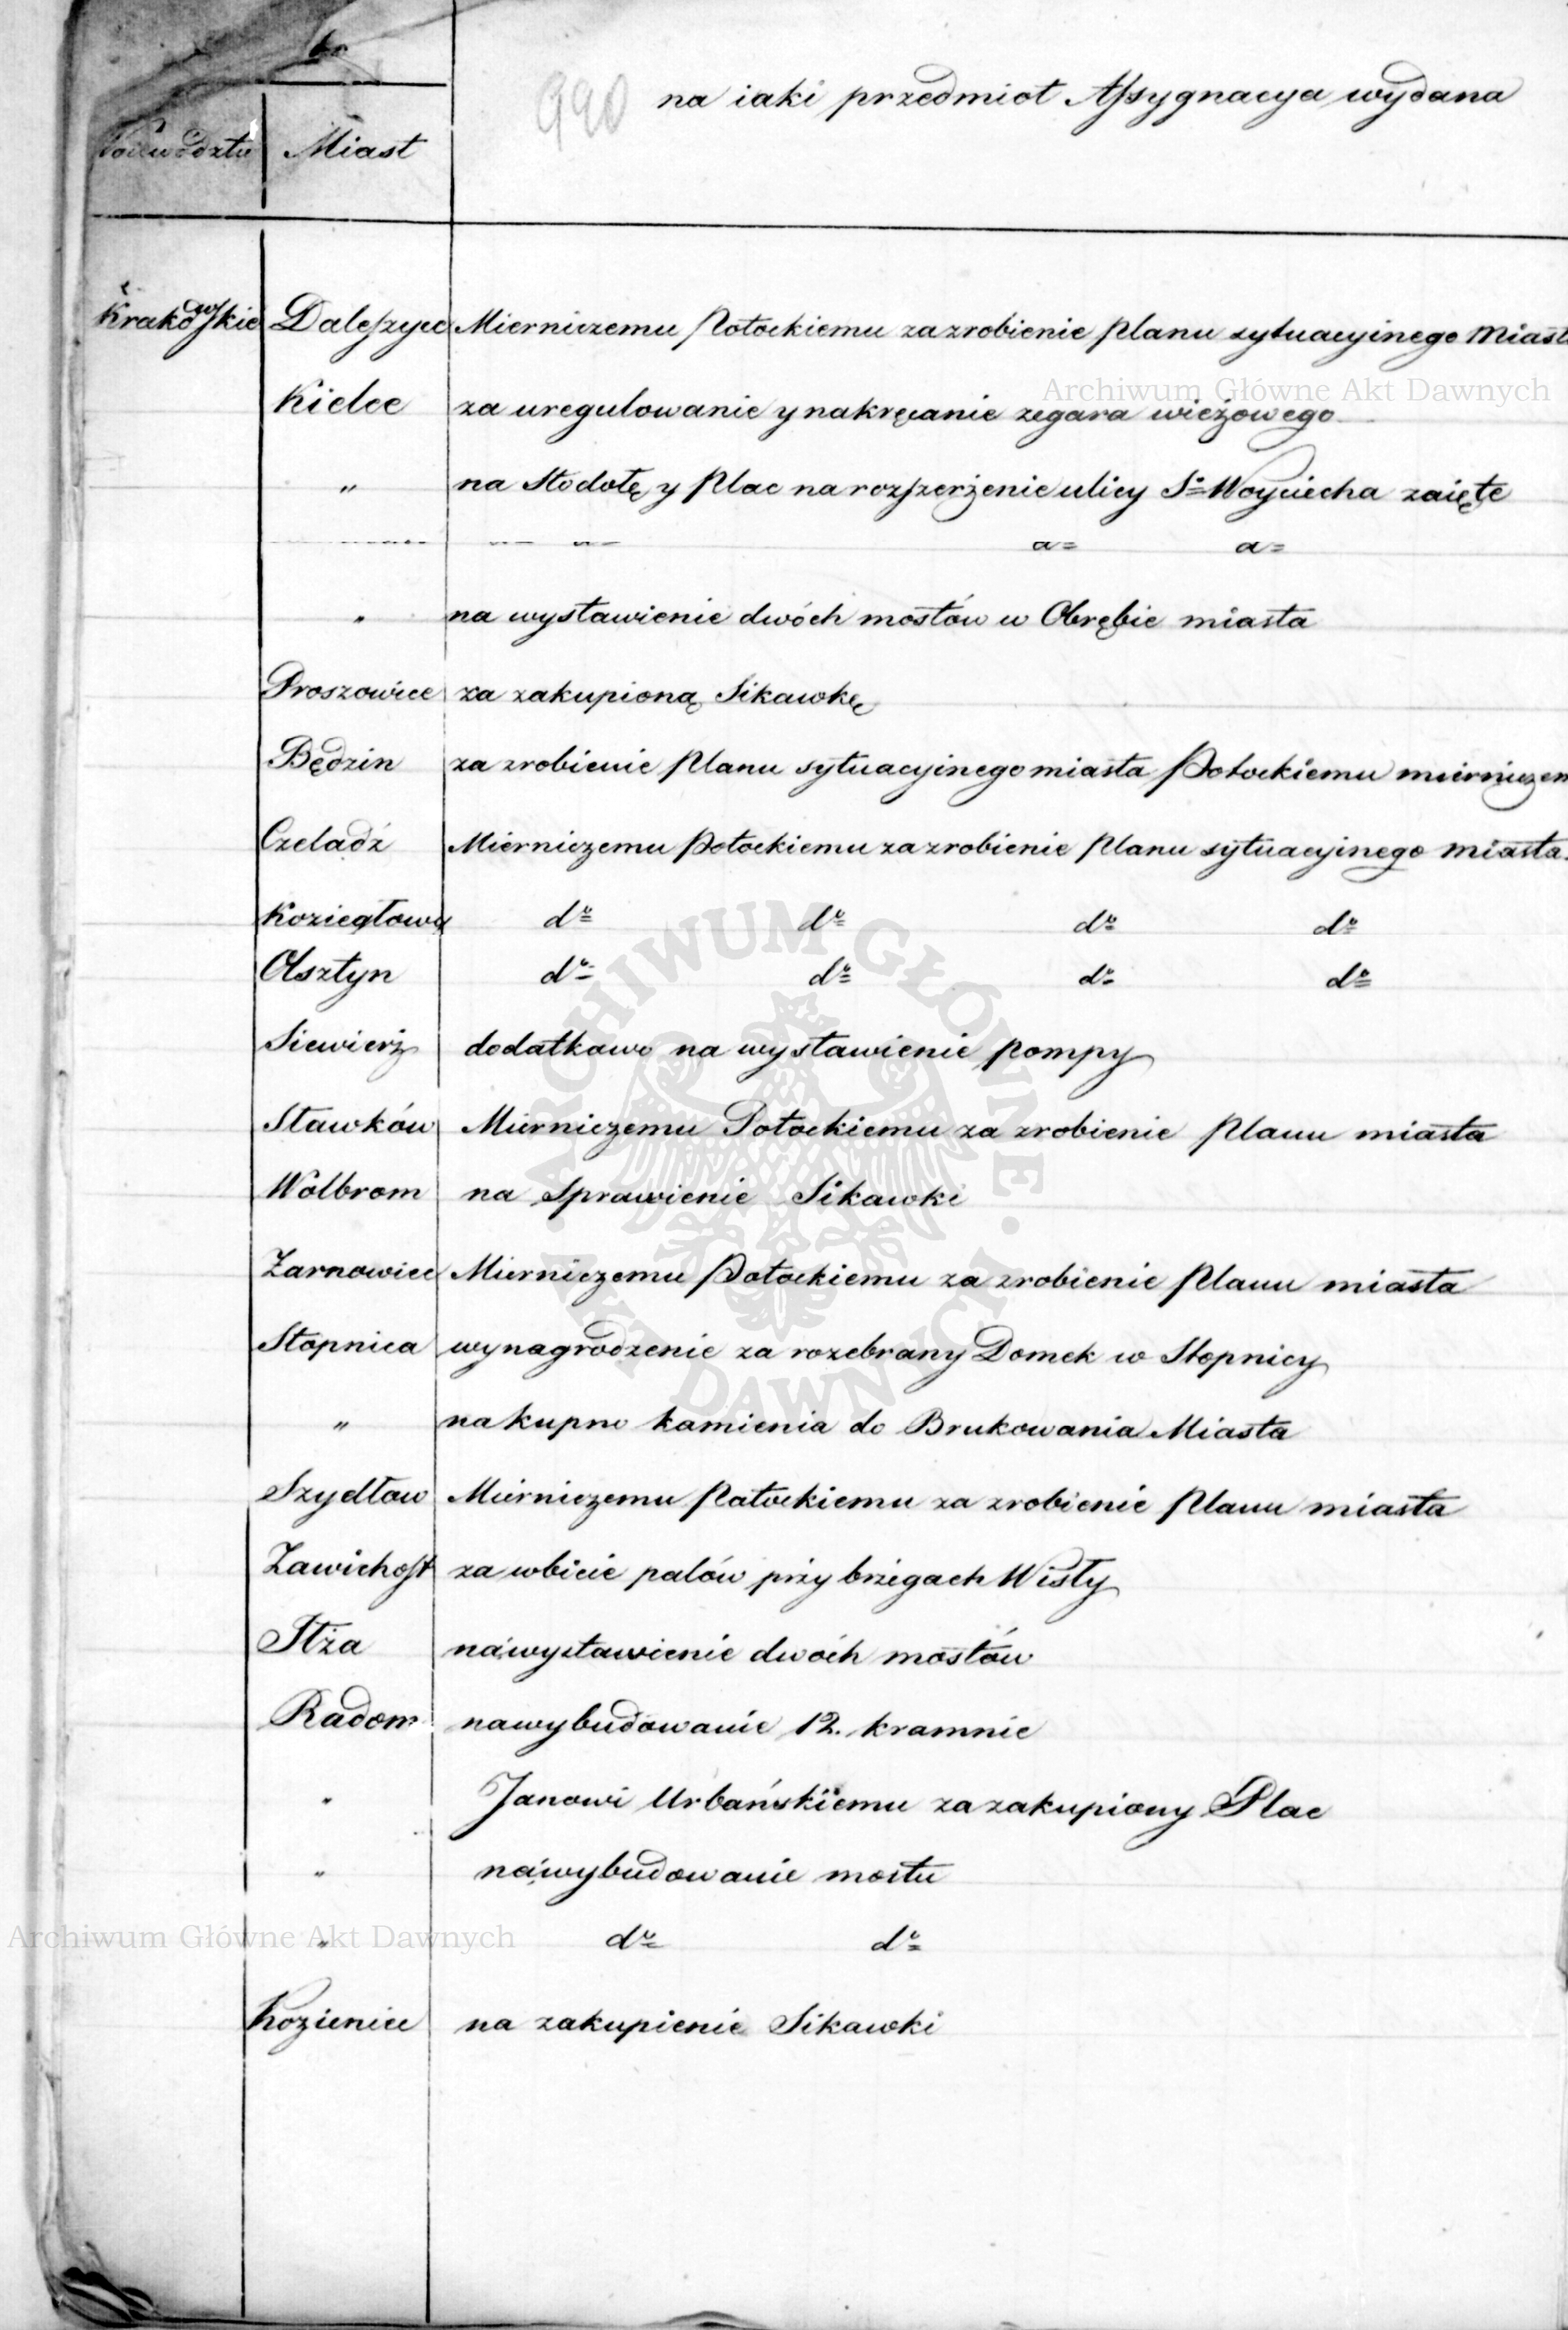 990 na iaki przedmiot Assygnacya wydana
Woiewództw Miast
Krakowskie Daleszyce Mierniczemu Potockiemu za zrobienie Planu sytuacyinego Miast
Archiwum Główne Akt Dawnych
Kielce za uregulowanie y nakręcanie zegara wieżowego
" na Stodołę y Plac na rozszerżenie ulicy Sº Woyciecha zaięte
" na wystawienie dwóch mostów w Obrębie miasta
Proszowice za zakupioną Sikawkę
Będzin za zrobienie Planu sytuacyinego miasta Potockiemu mierniczem
Czeladź Mierniczemu Potockiemu za zrobienie Planu sytuacyinego miasta.
Koziegłowy dº dº dº dº
Olsztyn dº dº dº dº
Siewierż dodatkowo na wystawienie pompy
Sławków Mierniczemu Potockiemu za zrobienie Planu miasta
Wolbrom na Sprawienie Sikawki
Żarnowiec Mierniczemu Potockiemu za zrobienie Planu miasta
Stopnica wynagrodzenie za rozebrany Domek w Stopnicy
" na kupno kamienia do Brukowania Miasta
Szydłow Mierniczemu Potockiemu za zrobienie Planu miasta
Zawichost za wbicie palów przy brzegach Wisły
Iłża na wystawienie dwóch mostów
Radom na wybudowanie 12. kramnic
" Janowi Urbańskiemu za zakupiony Plac
" na wybudowanie mostu
Archiwum Główne Akt Dawnych
" dº dº
Kozienice na zakupienie Sikawki
ARCHIWUM GŁÓWNE AKT DAWNYCH